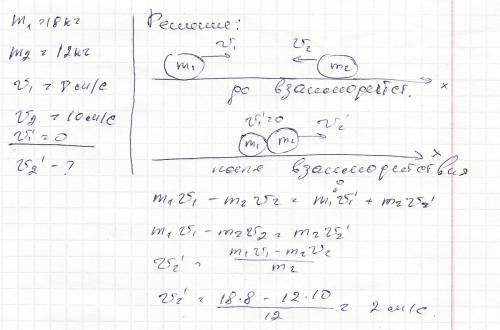 m₁ = 18 кг
m₂ = 12 кг
v₁ = 8 м/с
v₂ = 10 м/с
v₁' = 0
v₂' - ?
Решение:
m₁ v₁ v₂ m₂ x
до взаимодейст.
v₁'=0 v₂'
m₁ m₂ x
после взаимодействия
m₁v₁ - m₂v₂ = m₁v₁' + m₂v₂'
0
m₁v₁ - m₂v₂ = m₂v₂'
v₂' = m₁v₁ - m₂v₂ / m₂
v₂' = 18·8 - 12·10 / 12 = 2 м/с.